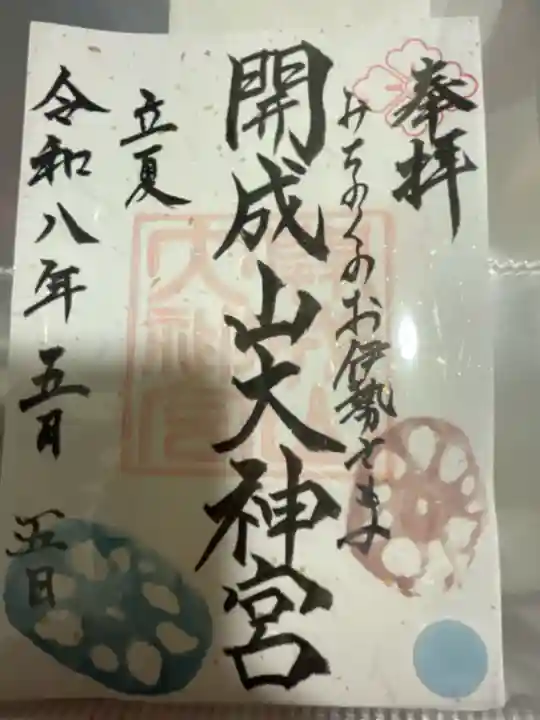 奉拝
みちのくのお伊勢さま
開成山大神宮
立夏
令和八年五月五日